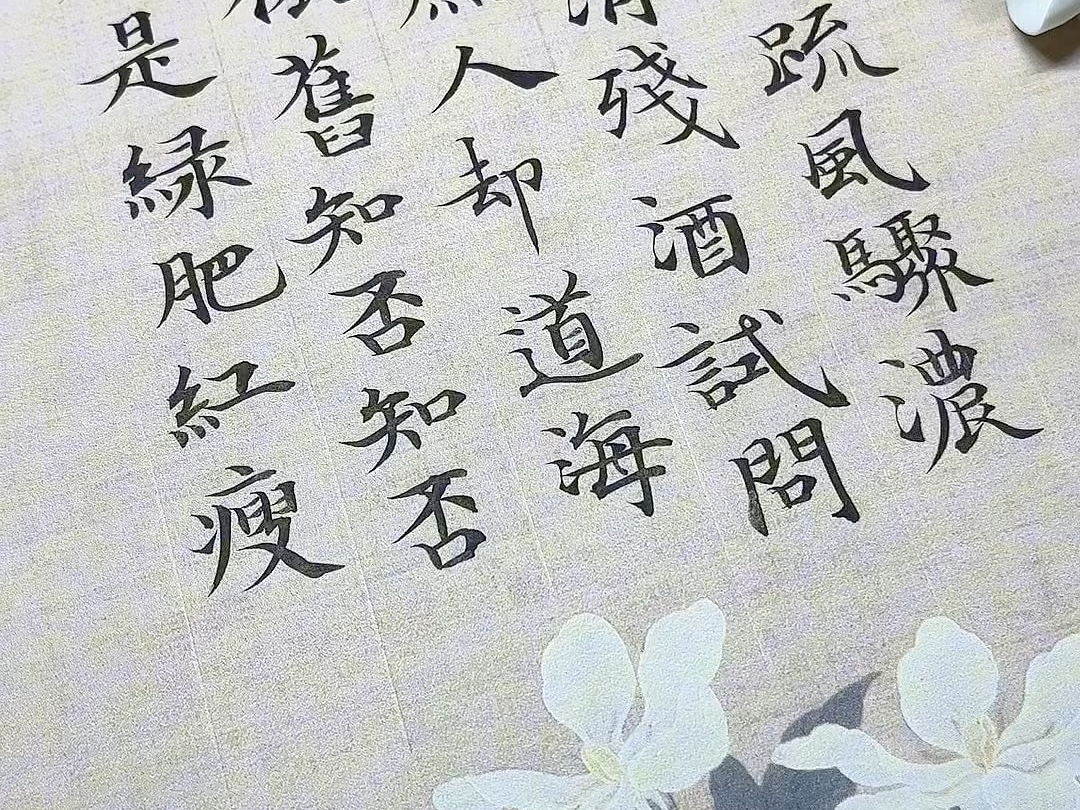 疏風驟濃
殘酒試問
人却道海
舊知否知否
是綠肥紅瘦